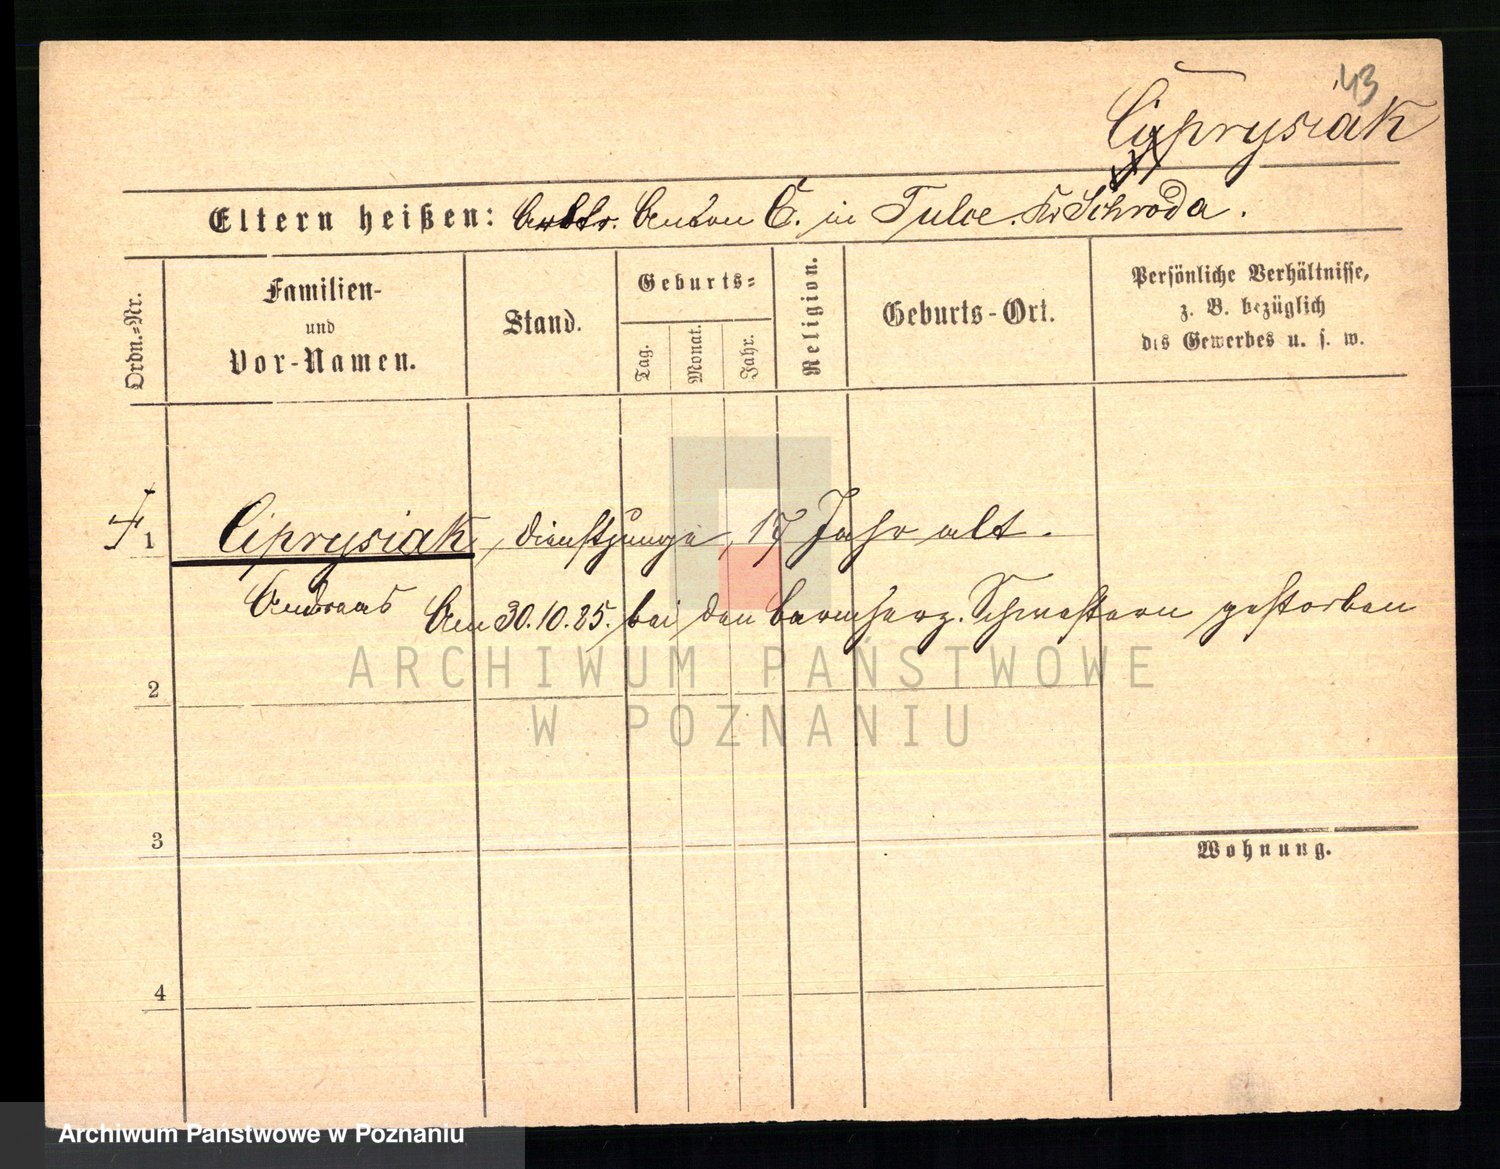 43
Ciprysiak
Eltern heißen: Arbtr. Anton C. in Tulce. Kr Schroda.
Ordn.-Nr.
Familien-
und
Vor-Namen.
Stand.
Geburts-
Tag.
Monat.
Jahr.
Religion.
Geburts-Ort.
Persönliche Verhältnisse,
z. B. bezüglich
des Gewerbes u. s. w.
1 Ciprysiak, Dienstjunge, 17 Jahr alt.
Andreas Am 30.10.85. bei den barmherz. Schwestern gestorben
ARCHIWUM PAŃSTWOWE
W POZNANIU
2
3
Wohnung.
4
Archiwum Państwowe w Poznaniu